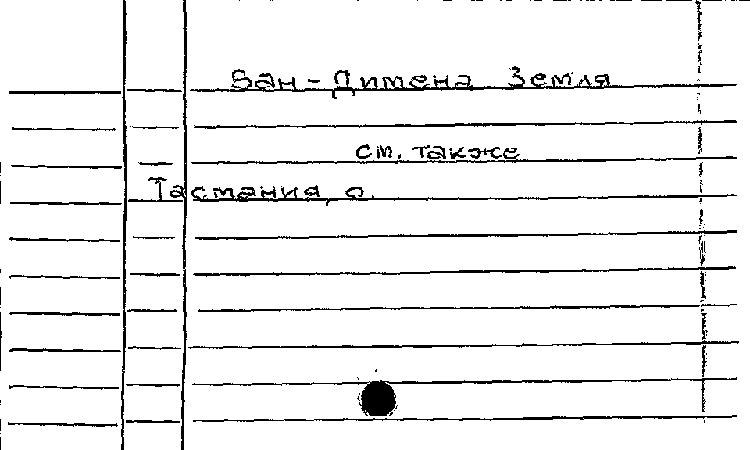 Ван-Димена Земля
см. также
Тасмания, о.